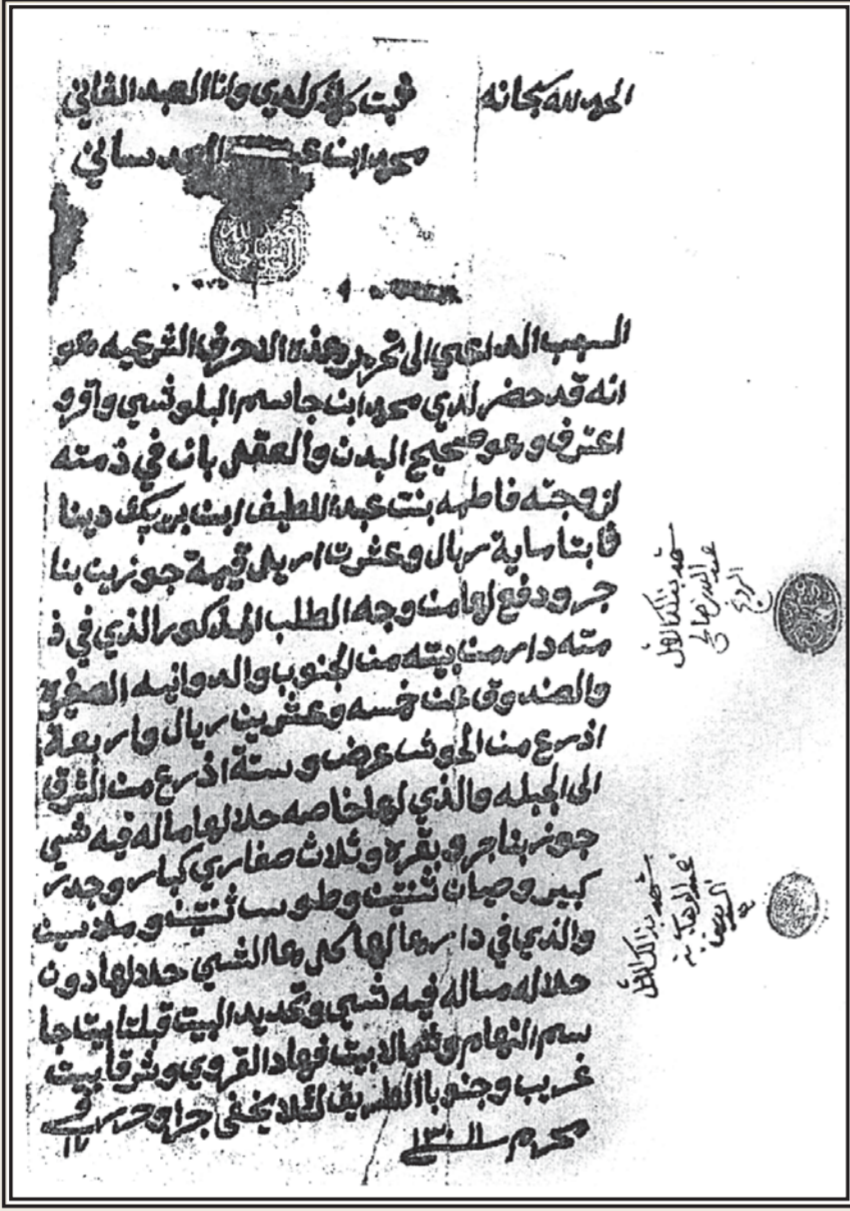 الحمد لله سبحانه
ثبت ما ذكر لدي وانا العبد الفاني
محمد ابن العدساني
السبب الداعي الى تحرير هذه الاحرف الشرعيه هو
انه قد حضر لدي محمد ابن جاسم البلونسي واقر و
اعترف وهو صحيح البدن والعقل بان في ذمته
لزوجته فاطمه بنت عبد اللطيف ابن بريك دينا
ثابتا ماية ريال وعشرت اريل قيمة جوزين بنا
جر ودفع لها من وجه الطلب المذكور الذي في ذ
مته دار من بيته من الجنوب والدوانيه الصغيره
والصندوق عن خمسه وعشرين ريال واربعة
اذرع من الحوش عرض وستة اذرع من الشرق
الى الجبله والذي لها خاصه حلالها ماله فيه شي
جوز بناجر وبقره وثلاث صفاري كبار وجدر
كبير وصان ثنتين وطوس ثنتين وملاسين
والذي في دارها لها كل هالشي حلالها دون
حلاله ماله فيه شي وتحديد البيت قبلتا بيت جا
سم النهام وشمالا بيت فهاد القروي وشرقا بيت
غريب وجنوبا الطريق لئلا يخفى جرا وحرر في ١٧
محرم سنة ١٣٠١
شهد بذلك الاقل
شهد بذلك الاقل